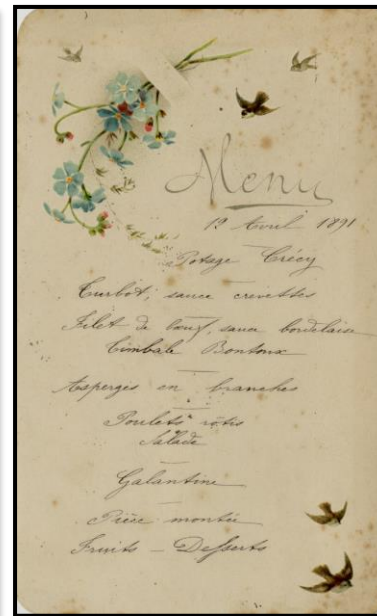 Menu
19 Avril 1891
Potage Crécy
Turbot, sauce crevettes
Filet de bœuf, sauce bordelaise
Timbale Bontoux
Asperges en branches
Poulets rôtis
Salade
Galantine
Pièce montée
Fruits — Desserts